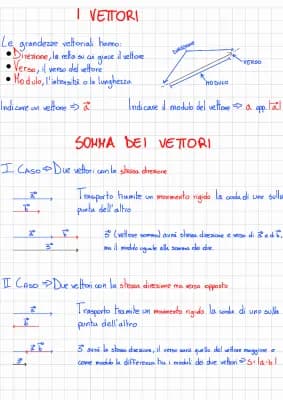 I VETTORI
Le grandezze vettoriali hanno:
Direzione, la retta su cui giace il vettore
Verso, il verso del vettore
Modulo, l'intensità o la lunghezza
DIREZIONE
VERSO
MODULO
Indicare un vettore => a⃗
Indicare il modulo del vettore => a opp. |a⃗|
SOMMA DEI VETTORI
I CASO => Due vettori con la stessa direzione
a⃗
b⃗
Trasporto tramite un movimento rigido la coda di uno sulla
punta dell'altro
a⃗ b⃗
s⃗
s⃗ (vettore somma) avrà stessa direzione e verso di a⃗ e di b⃗,
ma il modulo uguale alla somma dei due.
II CASO => Due vettori con la stessa direzione ma verso opposto
a⃗
b⃗
Trasporto tramite un movimento rigido la coda di uno sulla
punta dell'altro
a⃗ b⃗
s⃗
s⃗ avrà la stessa direzione, il verso sarà quello del vettore maggiore e
come modulo la differenza tra i moduli dei due vettori => s = |a-b|